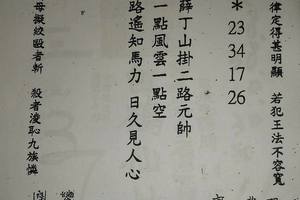 律定得甚明顯　若犯王法不容寬
＊ 23 34 17 26
薛丁山掛二路元帥
一點風雲一點空
路遙知馬力 日久見人心
母擬絞毆者斬　殺者凌恥九族憐